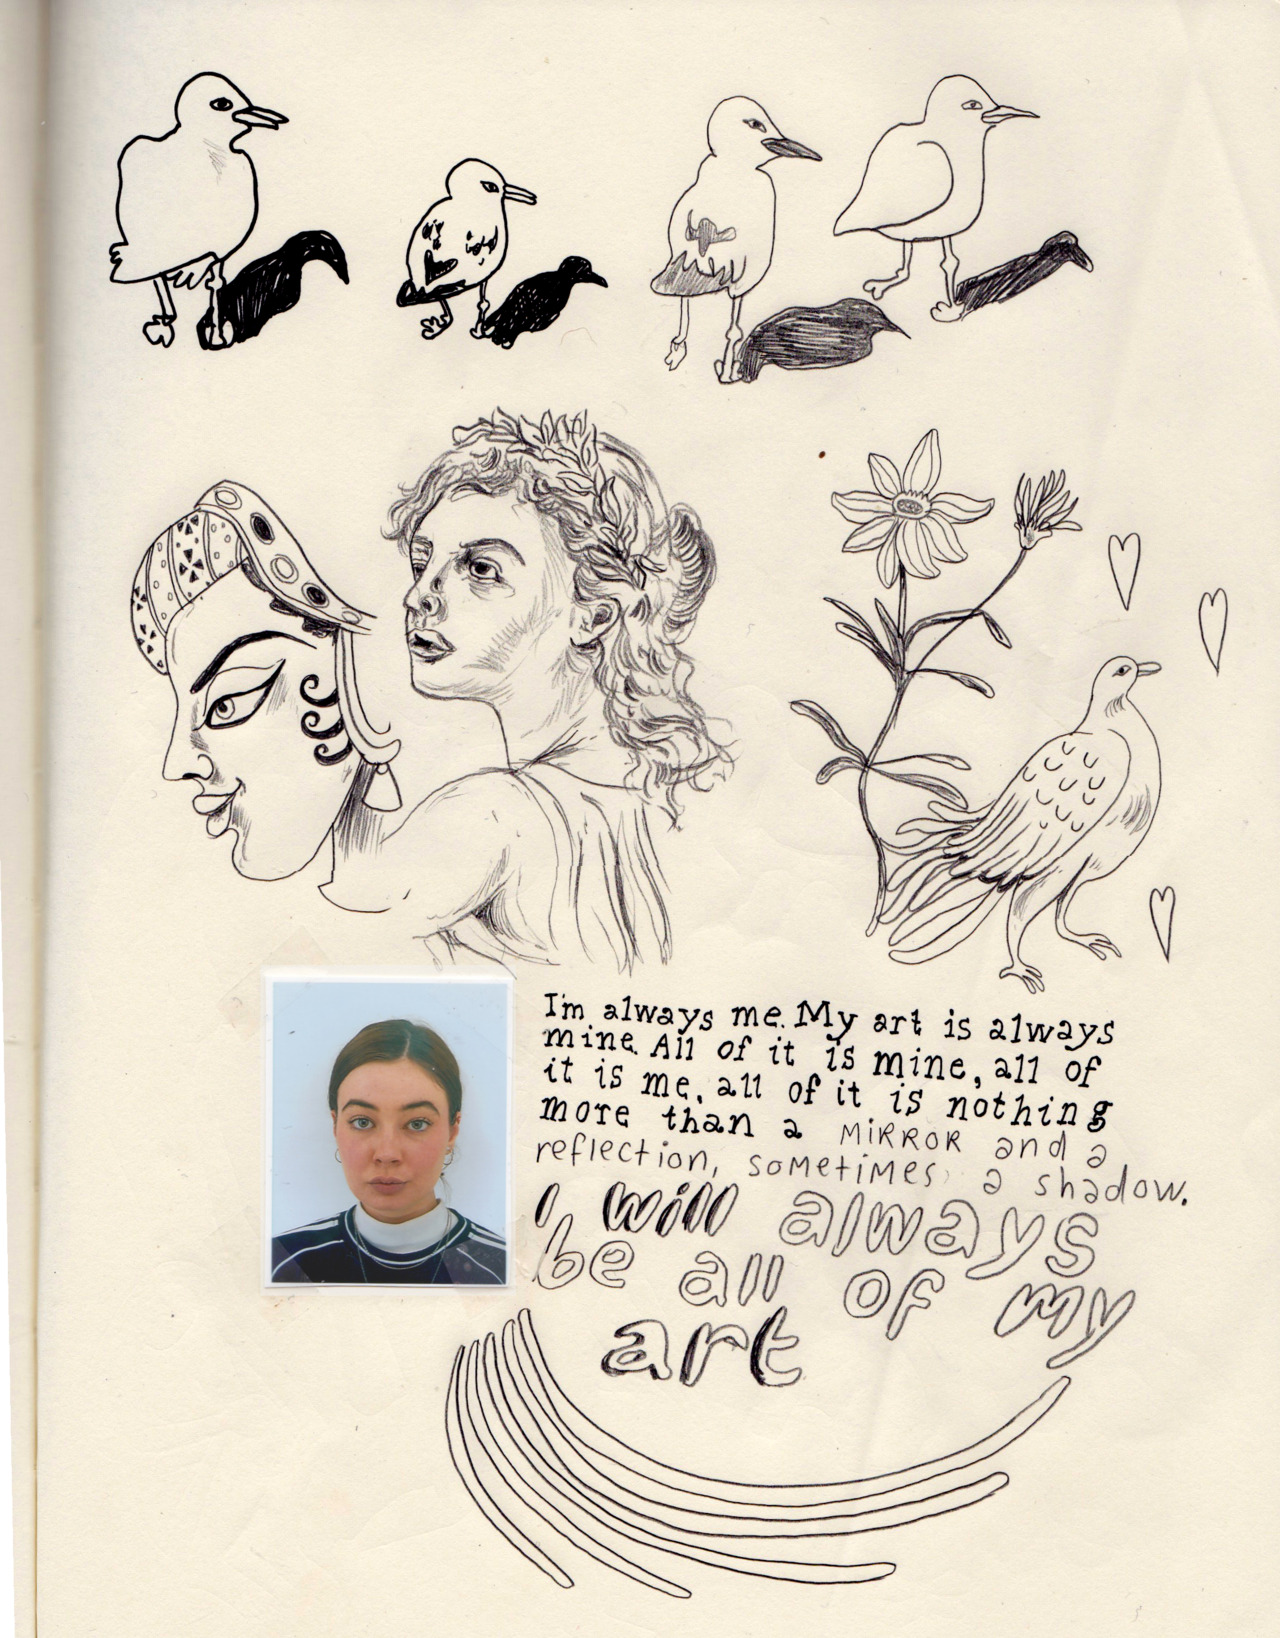 I'm always me. My art is always
mine. All of it is mine, all of
it is me, all of it is nothing
more than a MIRROR and a
reflection, sometimes a shadow.
I will always
be all of my
art